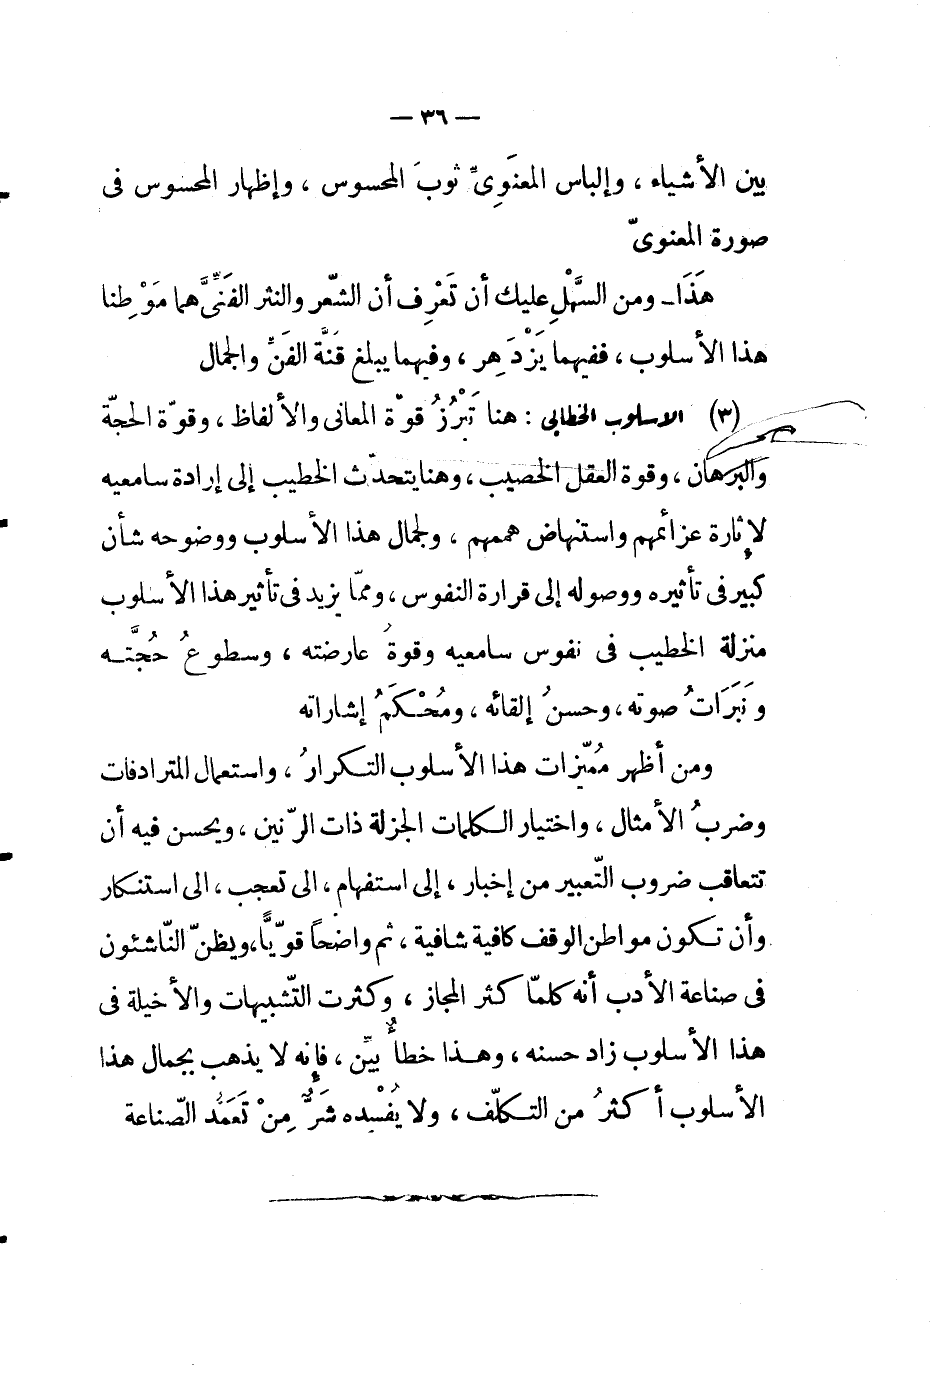 — ٣٦ —
بين الأشياء ، وإلباس المعنَوِىِّ ثوبَ المحسوس ، وإظهار المحسوس فى
صورة المعنوىّ
هَذَا ــ ومن السَّهْلِ عليك أن تَعْرِف أن الشّعر والنثر الفَنِّىَّ هما مَوْطِنا
هذا الأسلوب ، ففيهما يَزْدَهِر ، وفيهما يبلغ قُنَّة الفَنِّ والجمال
(٣) الاسلوب الخطابى : هنا تَبْرُزُ قوّة المعانى والألفاظ ، وقوّة الحجّة
والبرهان ، وقوة العقل الخصيب ، وهنا يتحدّث الخطيب إلى إرادة سامعيه
لإثارة عزائمهم واستنهاض هممهم ، ولجمال هذا الأسلوب ووضوحه شأن
كبير فى تأثيره ووصوله إلى قرارة النفوس ، وممّا يزيد فى تأثير هذا الأسلوب
منزلة الخطيب فى نفوس سامعيه وقوةُ عارضته ، وسطوعُ حُجَّتــه
ونَبَرَاتُ صوته ، وحسنُ إلقائه ، ومُحْكَمُ إشاراته
ومن أظهر مُمَيِّزات هذا الأسلوب التكرارُ ، واستعمال المترادفات
وضربُ الأمثال ، واختيار الكلمات الجزلة ذات الرّنين ، ويحسن فيه أن
تتعاقب ضروب التّعبير من إخبار ، إلى استفهام ، الى تعجب ، الى استنكار
وأن تكون مواطن الوقف كافية شافية ، ثم واضحاً قويًّا، ويظنّ النّاشئون
فى صناعة الأدب أنه كلمّا كثر المجاز ، وكثرت التّشبيهات والأخيلة فى
هذا الأسلوب زاد حسنه ، وهــذا خطأٌ بيِّن ، فإنه لا يذهب بجمال هذا
الأسلوب أكثرُ من التكلّف ، ولا يُفْسِده شَرٌّ مِنْ تَعَمُّد الصّناعة